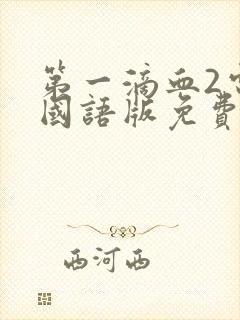 第一滴血2
國語版免費
西河西